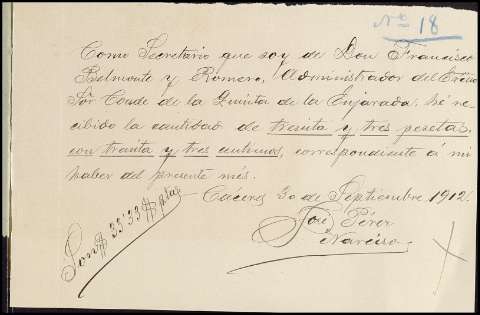 Nº 18
Como Secretario que soy de Don Francisco
Belmonte y Romero, Administrador del Excmo
Sor Conde de la Quinta de la Enjarada, hé re-
cibido la cantidad de treinta y tres pesetas,
con treinta y tres centimos, correspondiente á mi
haber del presente més.
Cáceres 30 de Septiembre 1912.
José Pérez
Narciso
Son $ 33'33 $ ptas